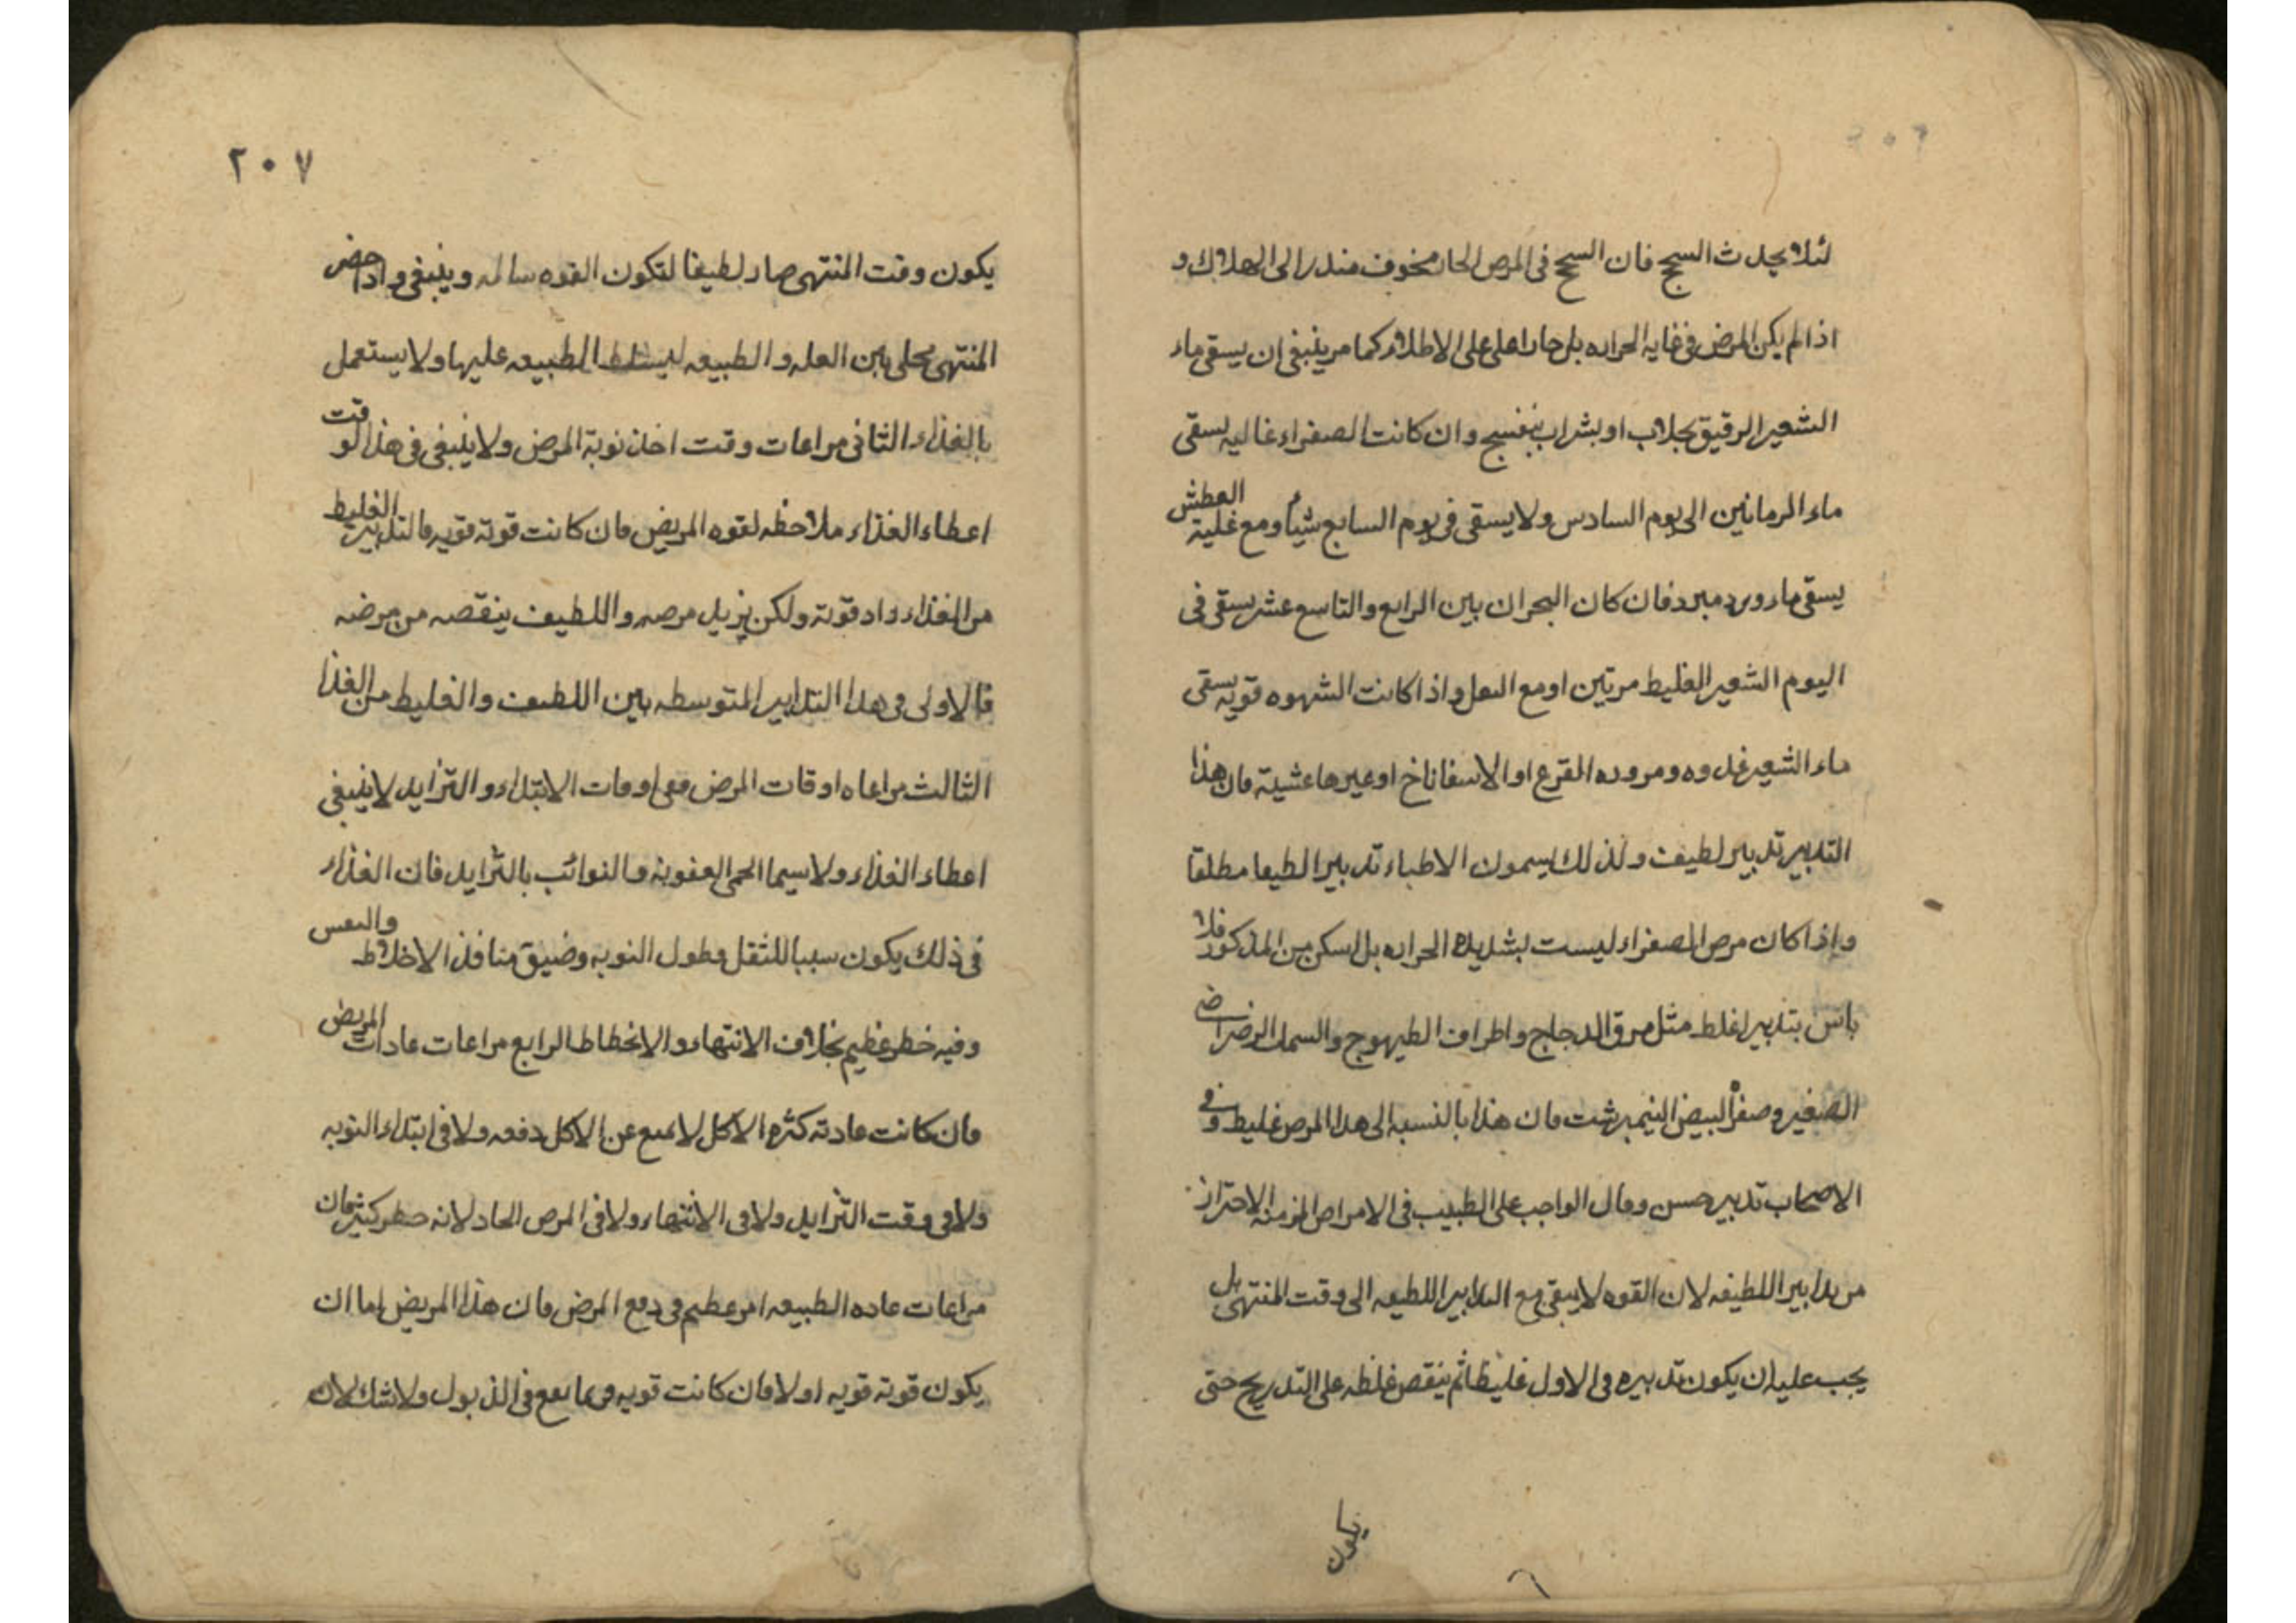 لئلا يحدث السحج فان السحج فى المرض الحار مخوف منذر الى الهلاك و
اذا لم يكن المرض فى غايه الحراره بل حارا على الاطلاق كما مر ينبغى ان يسقى ماء
الشعير الرقيق بجلاب او بشراب بنفسج وان كانت الصفراء غاليه يسقى
ماء الرمانين الى يوم السادس ولا يسقى فى يوم السابع شيأ ومع غلبة العطش
يسقى ماء ورد مبرد فان كان البحران بين الرابع والتاسع عشر يسقى فى
اليوم الشعير الغليط مرتين او مع واذا كانت الشهوه قويه يسقى
ماء الشعير غدوه ومروره القرع او الاسفاناخ او غيرها عشية فان هذا
التدبير تدبير لطيف ولذلك يسمون الاطباء تدبيرا لطيفا مطلقا
واذا كان مرض الصفراء ليست بشديدة الحراره بل اسكن من المذكور فلا
باس بتدبير اغلط مثل مرق الدجاج واطراف الطيهوج والسمك الرضراضى
الصغير وصفرة البيض النيمبرشت فان هذا بالنسبه الى هذا المرض غليط و فى
الاصحاب تدبير حسن وقال الواجب على الطبيب فى الامراض المزمنه الاحتراز
من تدابير اللطيفه لان القوه لا يبقى مع التدابير اللطيفه الى وقت المنتهى بل
يجب عليه ان يكون تدبيره فى الاول غليظا ثم ينقص غلظه على التدريج حتى
يكون
٢٠٧
يكون وقت المنتهى صار لطيفا لتكون القوه سالمه وينبغى واذا حضر
المنتهى يخلى بين العله والطبيعه ليتسلط الطبيعه عليها ولا يستعمل
بالغذاء الثانى مراعات وقت اخذ نوبة المرض ولا ينبغى فى هذا الوقت
اعطاء الغذاء ملاحظه لقوه المريض فان كانت قوته قويه فالتدبير الغليط
من الغذاء زاد قوته ولكن يزيل مرضه واللطيف ينقصه من مرضه
فالاولى فى هذا التدابير المتوسطه بين اللطيف والغليط من الغذا
الثالث مراعاه اوقات المرض ففى اوقات الابتداء والتزايد لا ينبغى
اعطاء الغذاء ولا سيما الحمى العفونة والنوائب بالتزايد فان الغذاء
فى ذلك يكون سببا للثقل وطول النوبه وضيق منافذ الاخلاط
وفيه خطر عظيم بخلاف الانتهاء والانحطاط الرابع مراعات عادات المريض
فان كانت عادته كثره الاكل لا يمنع عن الاكل دفعه ولا فى ابتداء النوبه
ولا فى وقت التزايد ولا فى الانتهاء ولا فى المرض الحاد لانه خطر كثير فان
مراعات عاده الطبيعه امر عظيم فى دفع المرض فان هذا المريض اما ان
يكون قوته قويه اولا فان كانت قويه يقع فى الذبول ولا شك لان